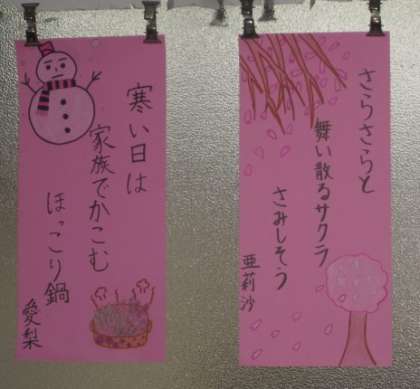 さらさらと
舞い散るサクラ
さみしそう
亜莉沙
寒い日は
家族でかこむ
ほっこり鍋
愛梨